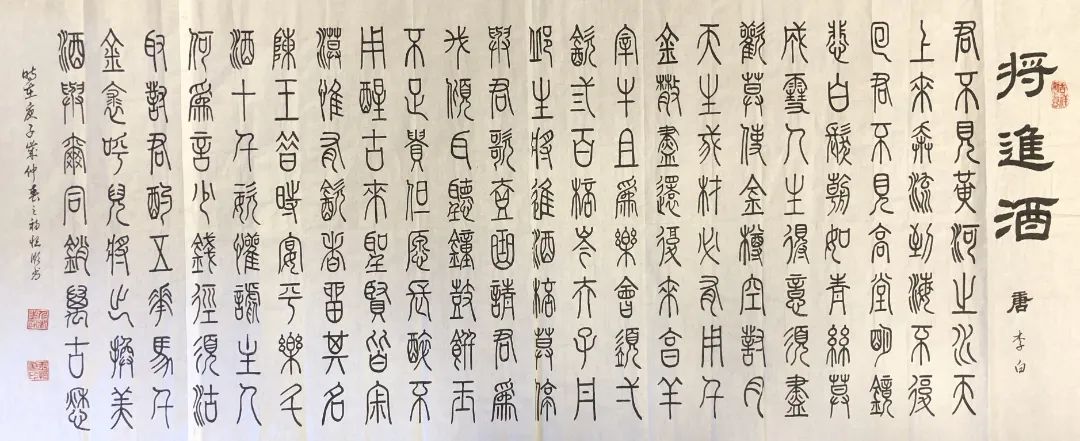 将進酒
唐 李白
君不見黃河之水天
上來奔流到海不復
回君不見高堂明鏡
悲白髮朝如青絲暮
成雪人生得意須盡
歡莫使金樽空對月
天生我材必有用千
金散盡還復來烹羊
宰牛且爲樂會須弌
飲弎百杯岑夫子丹
邱生將進酒杯莫停
與君歌壹曲請君爲
我傾耳聽鐘鼓饌玉
不足貴但愿長醉不
用醒古來聖賢皆寂
漠惟有飲者留其名
陳王昔時宴平樂斗
酒十千恣懽謔主人
何爲言少錢徑須沽
取對君酌五花馬千
金裘呼兒將出換美
酒與爾同銷萬古愁
時在庚子仲春之初恒书